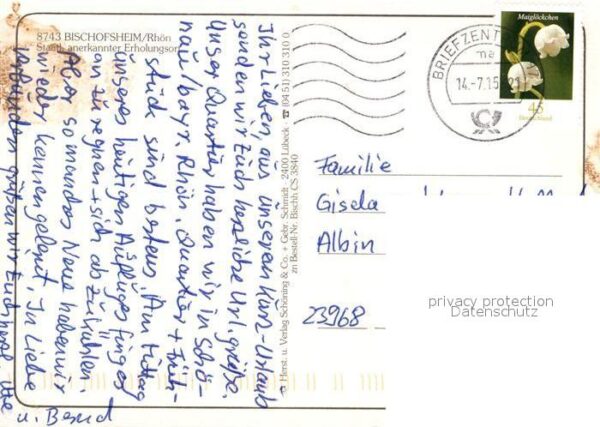 8743 BISCHOFSHEIM/Rhön
Staatl. anerkannter Erholungsort
Ihr Lieben, aus unserem Kurz-Urlaub
senden wir Euch herzliche Url. grüße.
Unser Quartier haben wir in Schö-
nau/bayr. Rhön, Quartier + Früh-
stück sind bestens. Am Mittag
unseres heutigen Ausfluges fing es
an zu regnen + sich abzukühlen.
Aber so manches Neue haben wir
wieder kennengelernt. In Liebe
verbunden grüßen wir Euch herzl. Ute
u. Bernd
Herst. u. Verlag Schöning & Co. + Gebr. Schmidt · 2400 Lübeck · ☎ (04 51) 310 310 0
zu Bestell-Nr. Bischh CS 3840
Maiglöckchen
45
Deutschland
BRIEFZENT
14.-7.15
21
Familie
Gisela
Albin
23968
privacy protection
Datenschutz